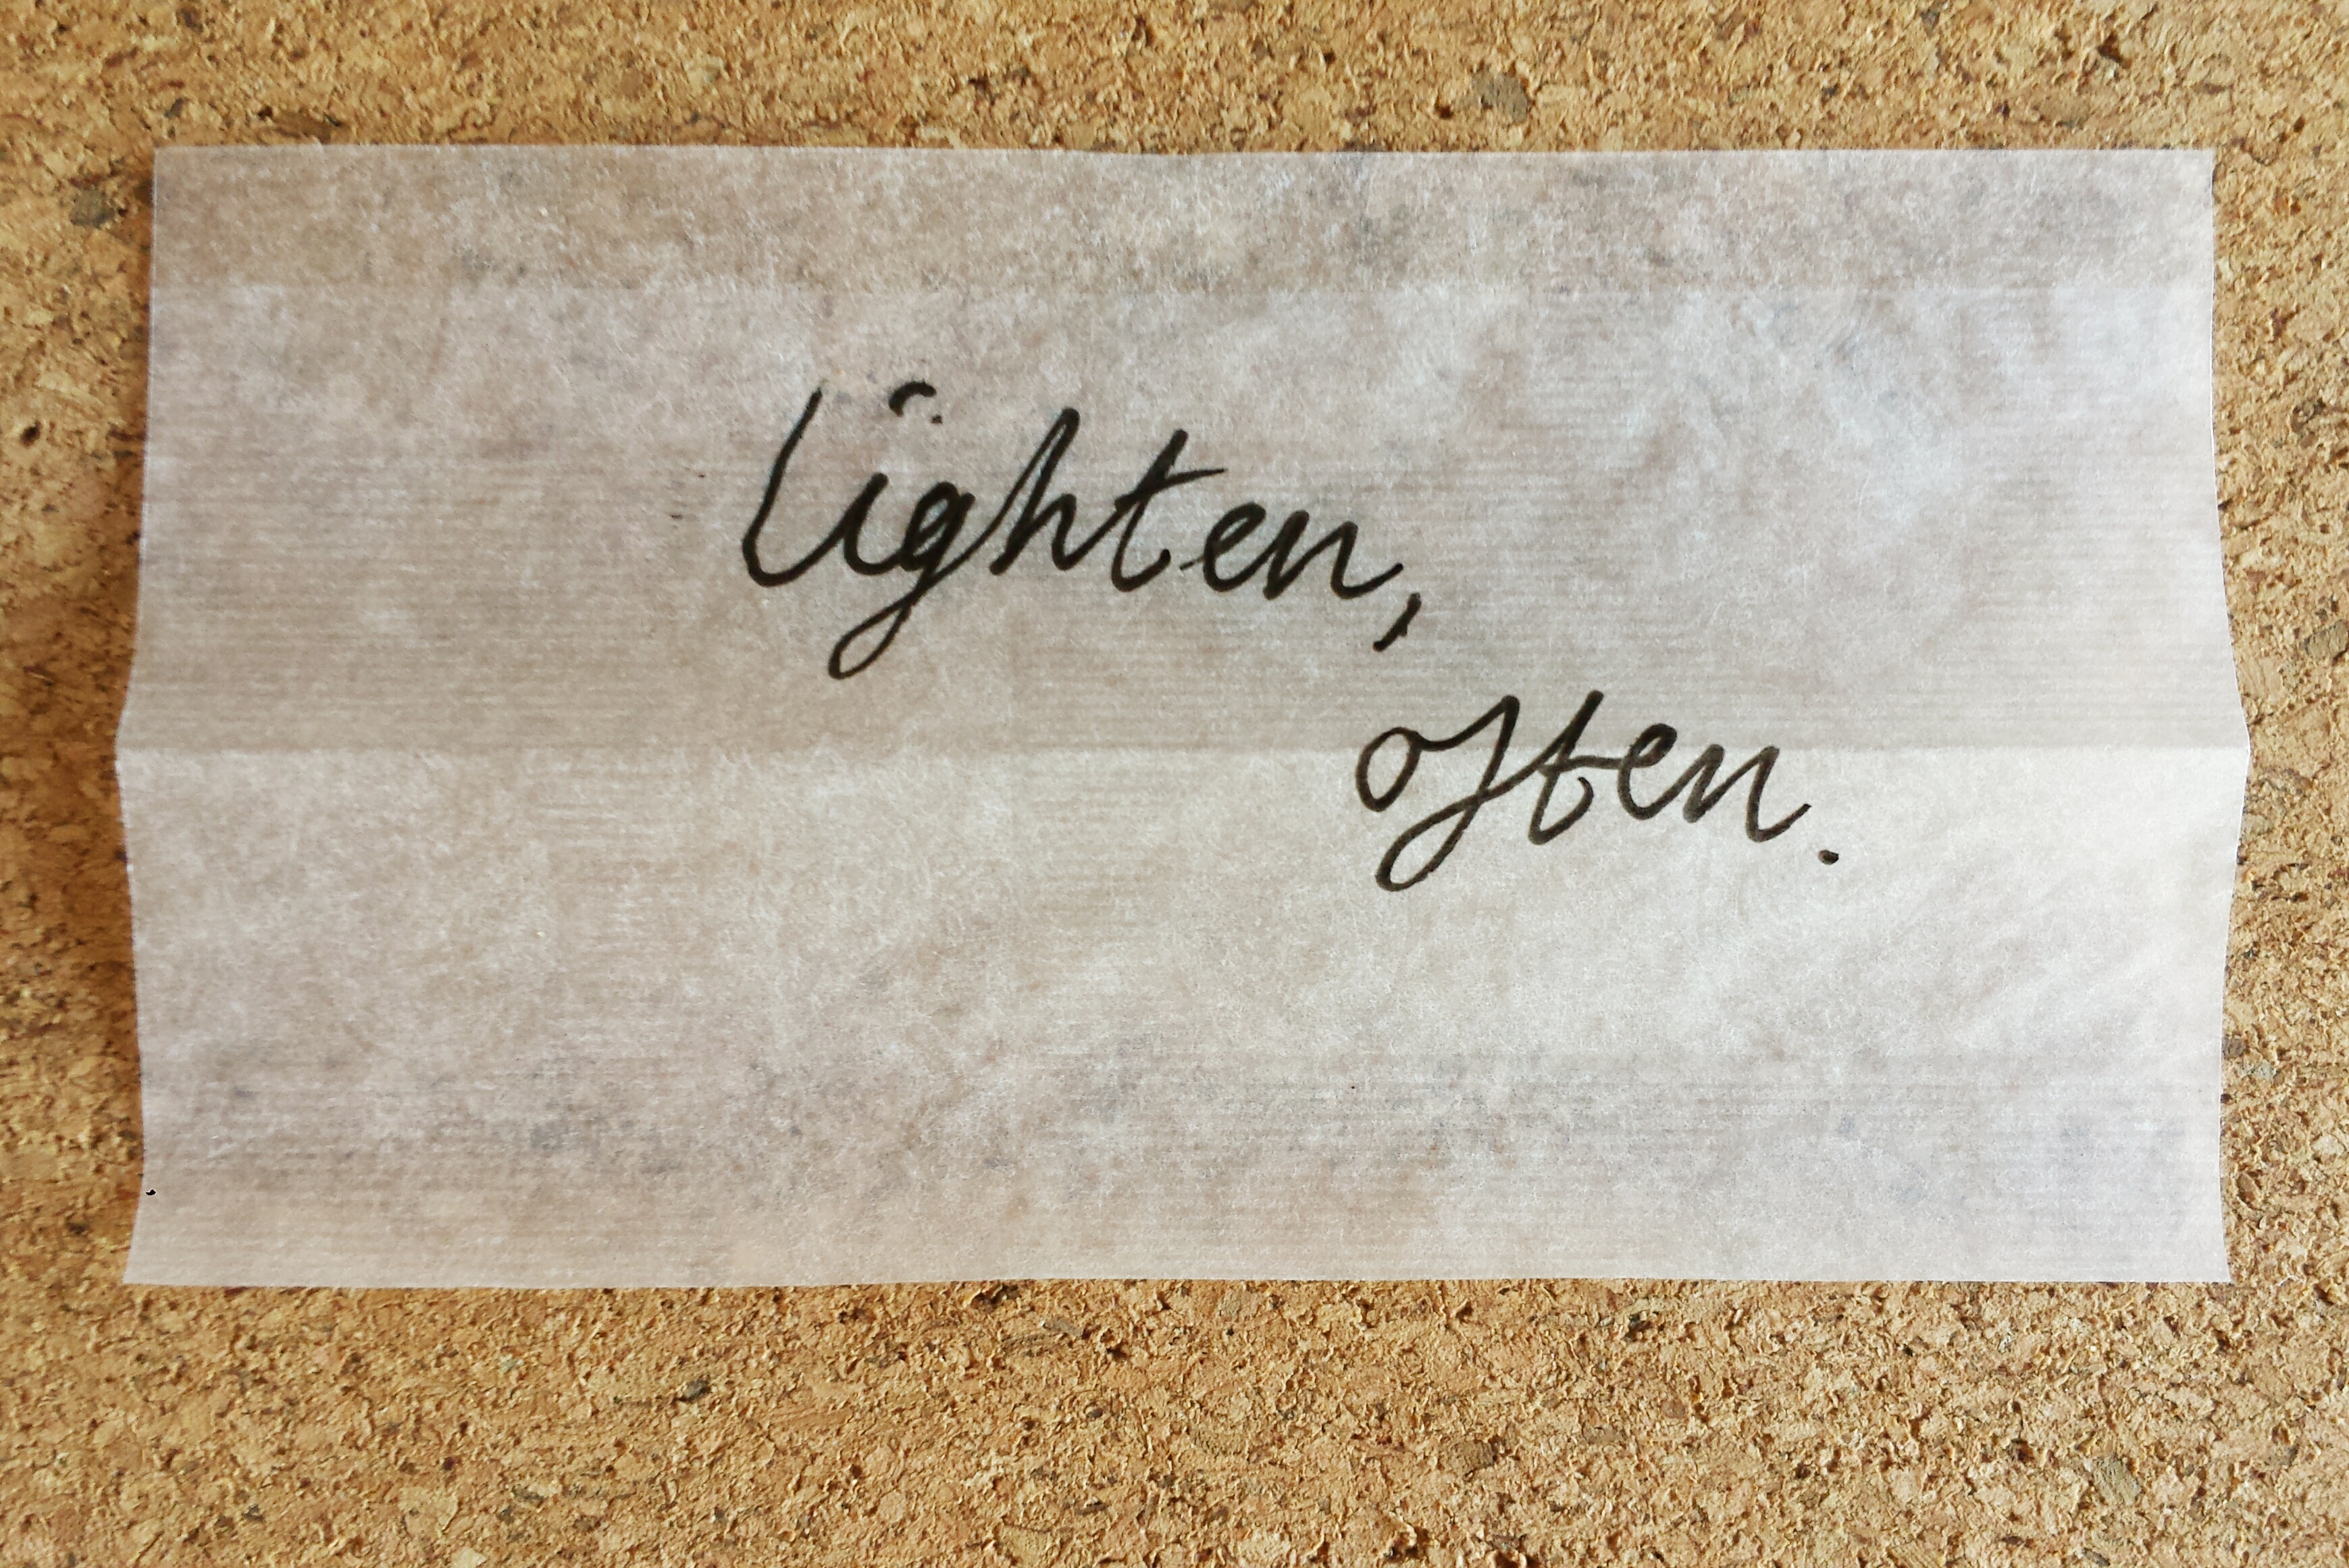 lighten,
often.